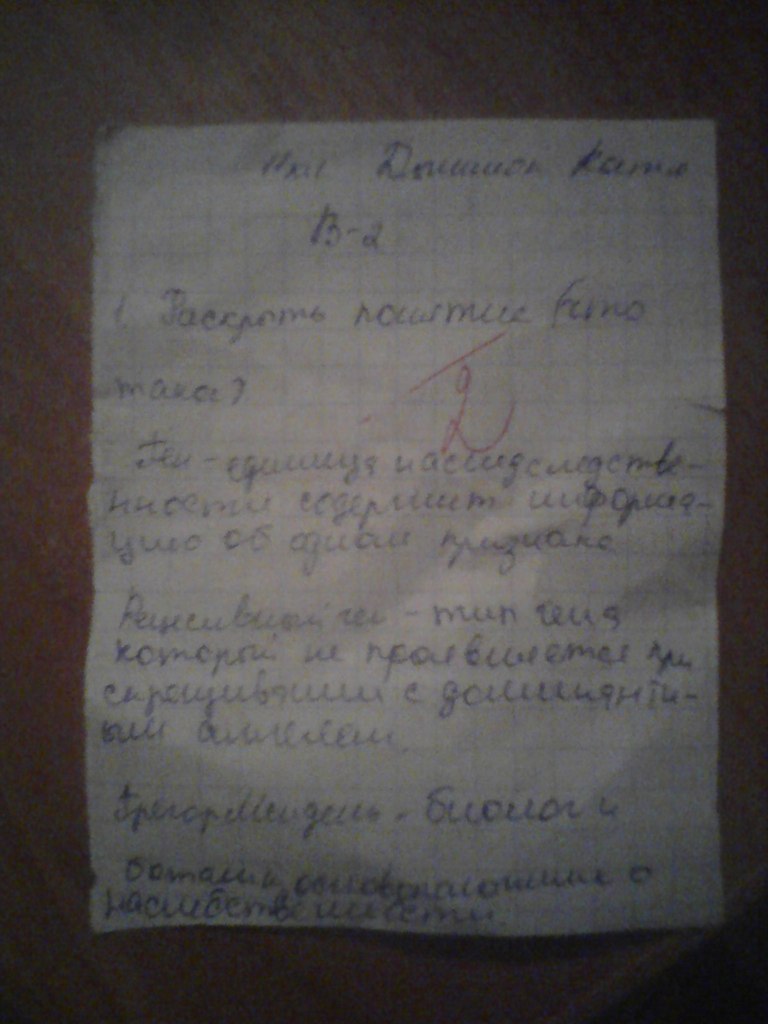 Катя
В-2
1. Раскрыть понятия
такое?
2
Ген - единица наследстве-
нности содержит информа-
цию об одном признаке
Рецесивный ген - тип гена
который не проявляется при
скрещивании с доминантн-
ым аллелем.
Грегор Мендель - биолог и
ботаник, о
наследственности